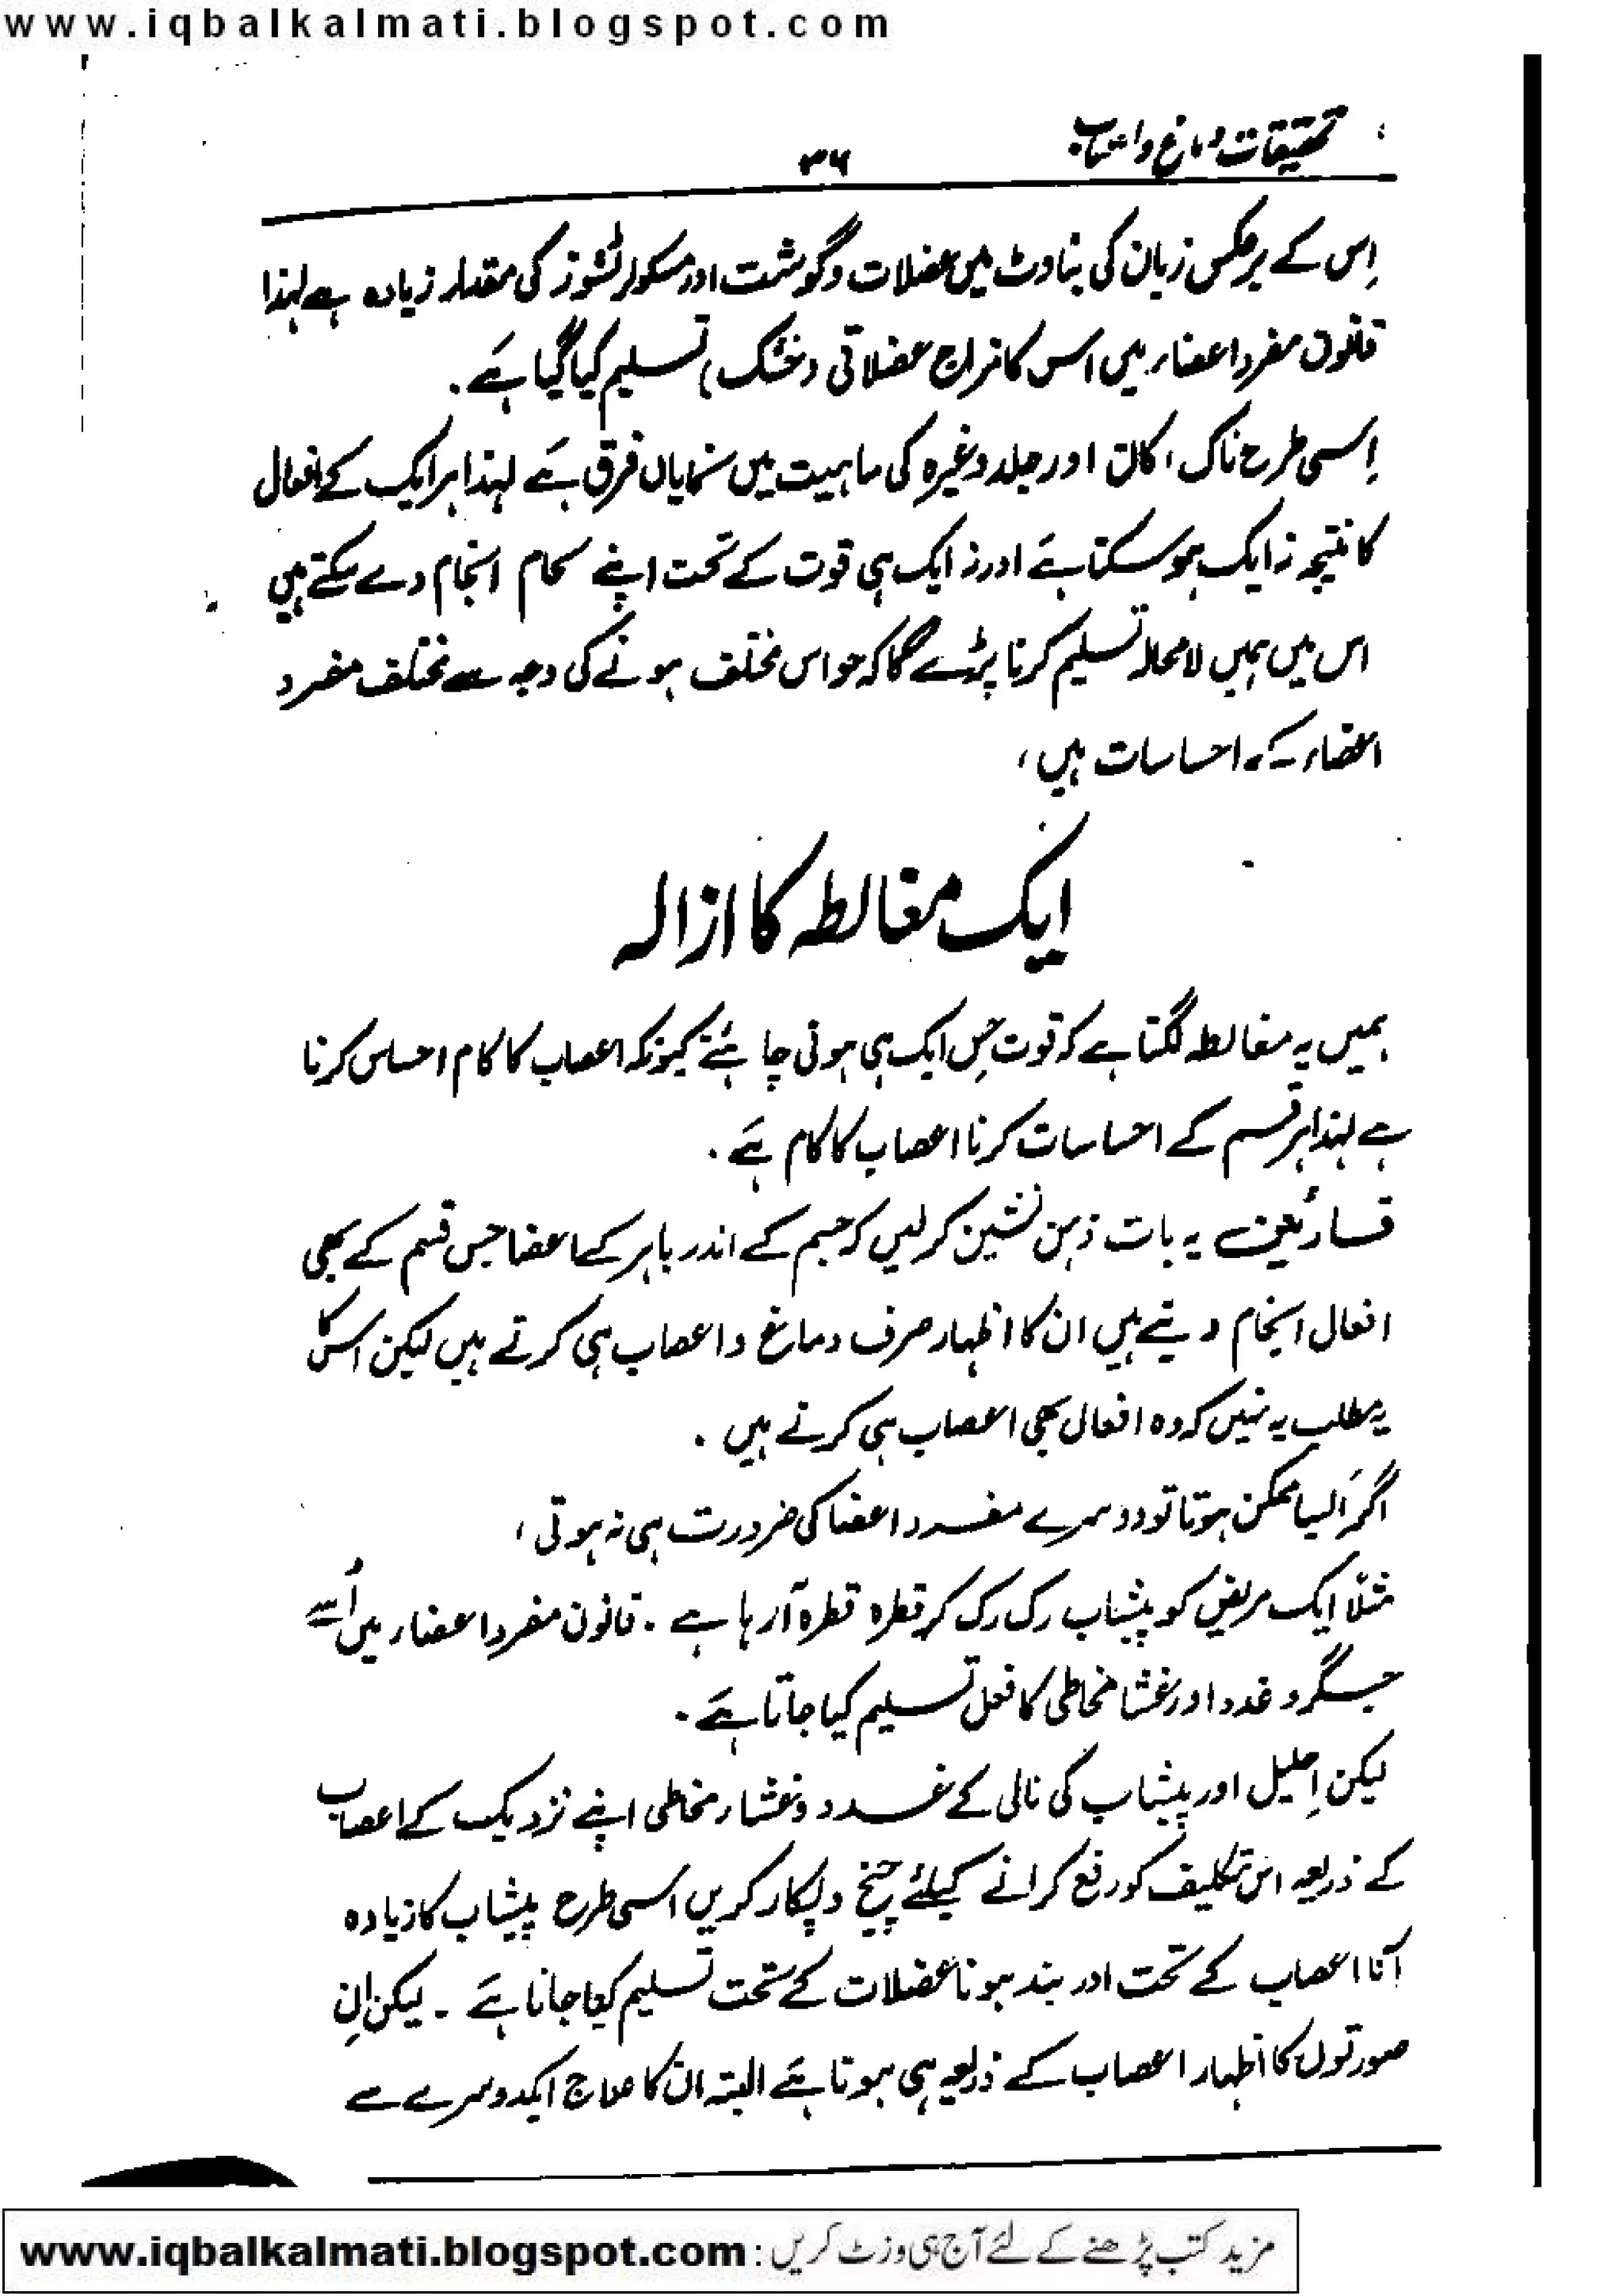 www.iqbalkalmati.blogspot.com
تحقیقات دماغ و اعصاب
۳۶
اِس کے برعکس زبان کی بناوٹ میں عضلات و گوشت اور مسکولر ٹشوز کی مقدار زیادہ ہے لہٰذا
قانون مفرد اعضاء میں اس کا مزاج عضلاتی (خشک) تسلیم کیا گیا ہے۔
اِسی طرح ناک، کان اور جلد وغیرہ کی ماہیت میں نمایاں فرق ہے لہٰذا ہر ایک کے افعال
کا نتیجہ نہ ایک ہو سکتا ہے اور نہ ایک ہی قوت کے تحت اپنے کام انجام دے سکتے ہیں
اس میں ہمیں لا محالہ تسلیم کرنا پڑے گا کہ حواس مختلف ہونے کی وجہ سے مختلف مفرد
اعضاء کے احساسات ہیں،
ایک مغالطہ کا ازالہ
ہمیں یہ مغالطہ لگتا ہے کہ قوت حِس ایک ہی ہونی چاہئے کیونکہ اعصاب کا کام احساس کرنا
ہے لہٰذا ہر قسم کے احساسات کرنا اعصاب کا کام ہے۔
قارئین یہ بات ذہن نشین کر لیں کہ جسم کے اندر باہر کے اعضا جس قسم کے بھی
افعال انجام دیتے ہیں ان کا اظہار صرف دماغ و اعصاب ہی کرتے ہیں لیکن اس کا
یہ مطلب یہ نہیں کہ وہ افعال بھی اعصاب ہی کرتے ہیں۔
اگر ایسا ممکن ہوتا تو دوسرے مفرد اعضا کی ضرورت ہی نہ ہوتی،
مثلاً ایک مریض کو پیشاب رک رک کر قطرہ قطرہ آ رہا ہے۔ قانون مفرد اعضاء میں اُسے
جگر و غدد اور غشا مخاطی کا فعل تسلیم کیا جاتا ہے۔
لیکن اِحلیل اور پیشاب کی نالی کے غدد و غشاء مخاطی اپنے نزدیک کے اعصاب
کے ذریعہ اس تکلیف کو رفع کرانے کیلئے چیخ و پکار کریں اسی طرح پیشاب کا زیادہ
آنا اعصاب کے تحت اور بند ہونا عضلات کے تحت تسلیم کیا جاتا ہے۔ لیکن اِن
صورتوں کا اظہار اعصاب کے ذریعہ ہی ہوتا ہے البتہ ان کا علاج ایکدوسرے سے
مزید کتب پڑھنے کے لئے آج ہی وزٹ کریں : www.iqbalkalmati.blogspot.com